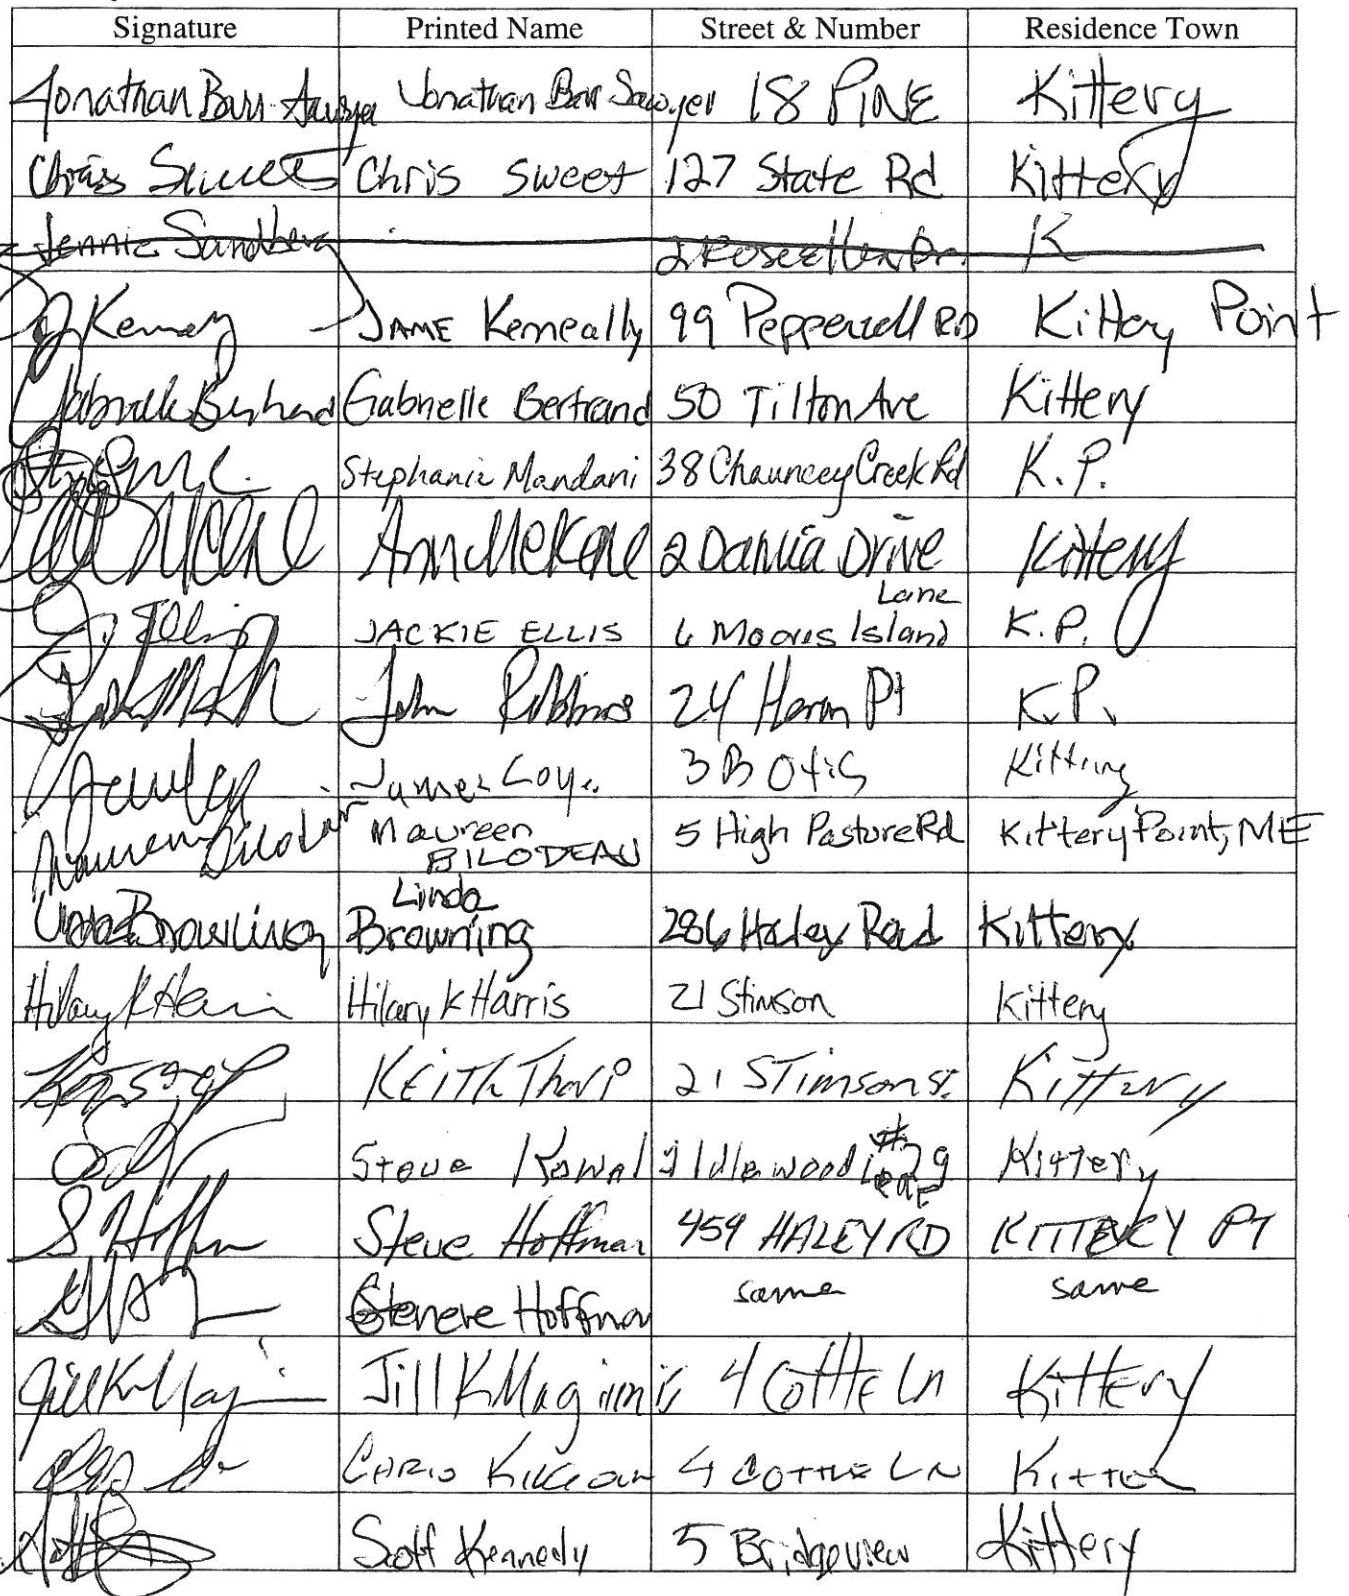 Signature Printed Name Street & Number Residence Town
Jonathan Barr-Sawyer Jonathan Barr Sawyer 18 PINE Kittery
Chris Sweet Chris Sweet 127 State Rd Kittery
Jennie Sandberg 2 Rosellen Dr. K
JAME Kenneally 99 Pepperrell RD Kittery Point
Gabrielle Bertrand Gabrielle Bertrand 50 Tilton Ave Kittery
Stephanie Mandani 38 Chauncey Creek Rd K.P.
2 Dahlia Drive Kittery
Lane
J. Ellis JACKIE ELLIS 6 Moores Island K.P.
John Robbins 24 Heron Pt K.P.
James 3 B Otis Kittery
Maureen Bilodeau Maureen 5 High Pasture Rd Kittery Point, ME
BILODEAU
Linda
Linda Browning Browning 286 Haley Road Kittery
Hilary K Harris Hilary K Harris 21 Stimson Kittery
KEITH Tharp 21 STimson St. Kittery
Steve Kowal Idlewood #29 Kittery
S Hoffman Steve Hoffman 459 HALEY RD KITTERY PT
Hoffman same same
Jill K Maginnis 4 Cottle Ln Kittery
CHRIS 4 COTTLE LN
Scott Kennedy 5 Bridgeview Kittery